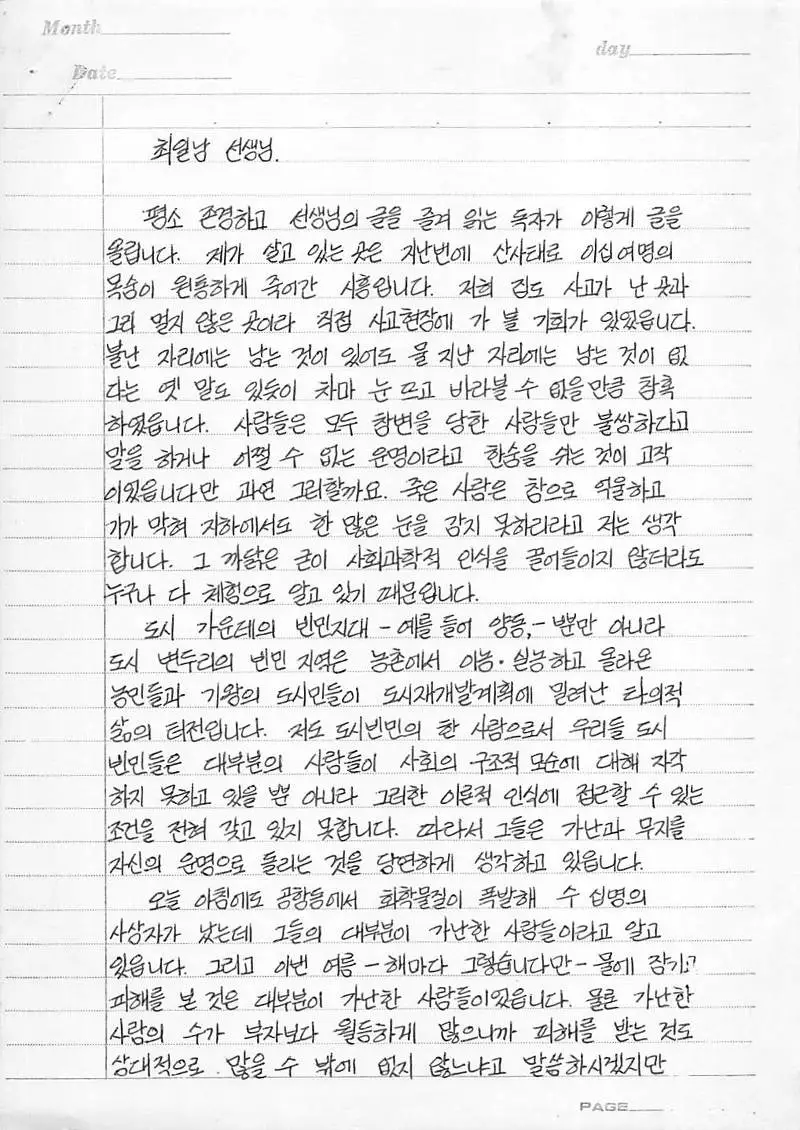 Month
day
Date
최일남 선생님.
평소 존경하고 선생님의 글을 즐겨 읽는 독자가 이렇게 글을
올립니다. 제가 살고 있는 곳은 지난번에 산사태로 이십여명의
목숨이 원통하게 죽어간 시흥입니다. 저희 집도 사고가 난 곳과
그리 멀지 않은 곳이라 직접 사고현장에 가 볼 기회가 있었읍니다.
불난 자리에는 남는 것이 있어도 물 지난 자리에는 남는 것이 없
다는 옛 말도 있듯이 차마 눈 뜨고 바라볼 수 없을만큼 참혹
하였읍니다. 사람들은 모두 참변을 당한 사람들만 불쌍하다고
말을 하거나 어쩔 수 없는 운명이라고 한숨을 쉬는 것이 고작
이었읍니다만 과연 그러할까요. 죽은 사람은 참으로 억울하고
기가 막혀 지하에서도 한 많은 눈을 감지 못하리라고 저는 생각
합니다. 그 까닭은 굳이 사회과학적 인식을 끌어들이지 않더라도
누구나 다 체험으로 알고 있기 때문입니다.
도시 가운데의 빈민지대 - 예를 들어 양동, - 뿐만 아니라
도시 변두리의 빈민 지역은 농촌에서 이농·실농하고 올라온
농민들과 기왕의 도시민들이 도시재개발계획에 밀려난 타의적
삶의 터전입니다. 저도 도시빈민의 한 사람으로서 우리들 도시
빈민들은 대부분의 사람들이 사회의 구조적 모순에 대해 자각
하지 못하고 있을 뿐 아니라 그러한 이론적 인식에 접근할 수 있는
조건을 전혀 갖고 있지 못합니다. 따라서 그들은 가난과 무지를
자신의 운명으로 돌리는 것을 당연하게 생각하고 있읍니다.
오늘 아침에도 공항동에서 화학물질이 폭발해 수 십명의
사상자가 났는데 그들의 대부분이 가난한 사람들이라고 알고
있읍니다. 그리고 이번 여름 - 해마다 그렇습니다만 - 물에 잠기고
피해를 본 것은 대부분이 가난한 사람들이었읍니다. 물론 가난한
사람의 수가 부자보다 월등하게 많으니까 피해를 받는 것도
상대적으로 많을 수 밖에 없지 않느냐고 말씀하시겠지만
PAGE